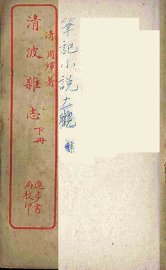 筆記小説大觀
清波雜志 下冊
清周煇著
進步書
局校印